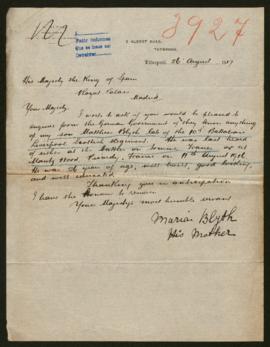 3927
5 ALBERT ROAD,
TUEBROOK,
Liverpool, 26 August 1917
His Majesty the King of Spain
Royal Palace
Madrid
Your Majesty
I write to ask if you would be pleased to
enquire from the German Government if they know anything
of my son Matthew Blyth late of the 10th Battalion
Liverpool Scottish Regiment. He was last heard
of either at the battle on Somme, France or at
Wood France on 9th August 1916
He was 26 year of age, well built, good looking
and well educated
Thanking you in anticipation
I have the Honour to remain
Your Majestys most humble servant
Maria Blyth
His Mother